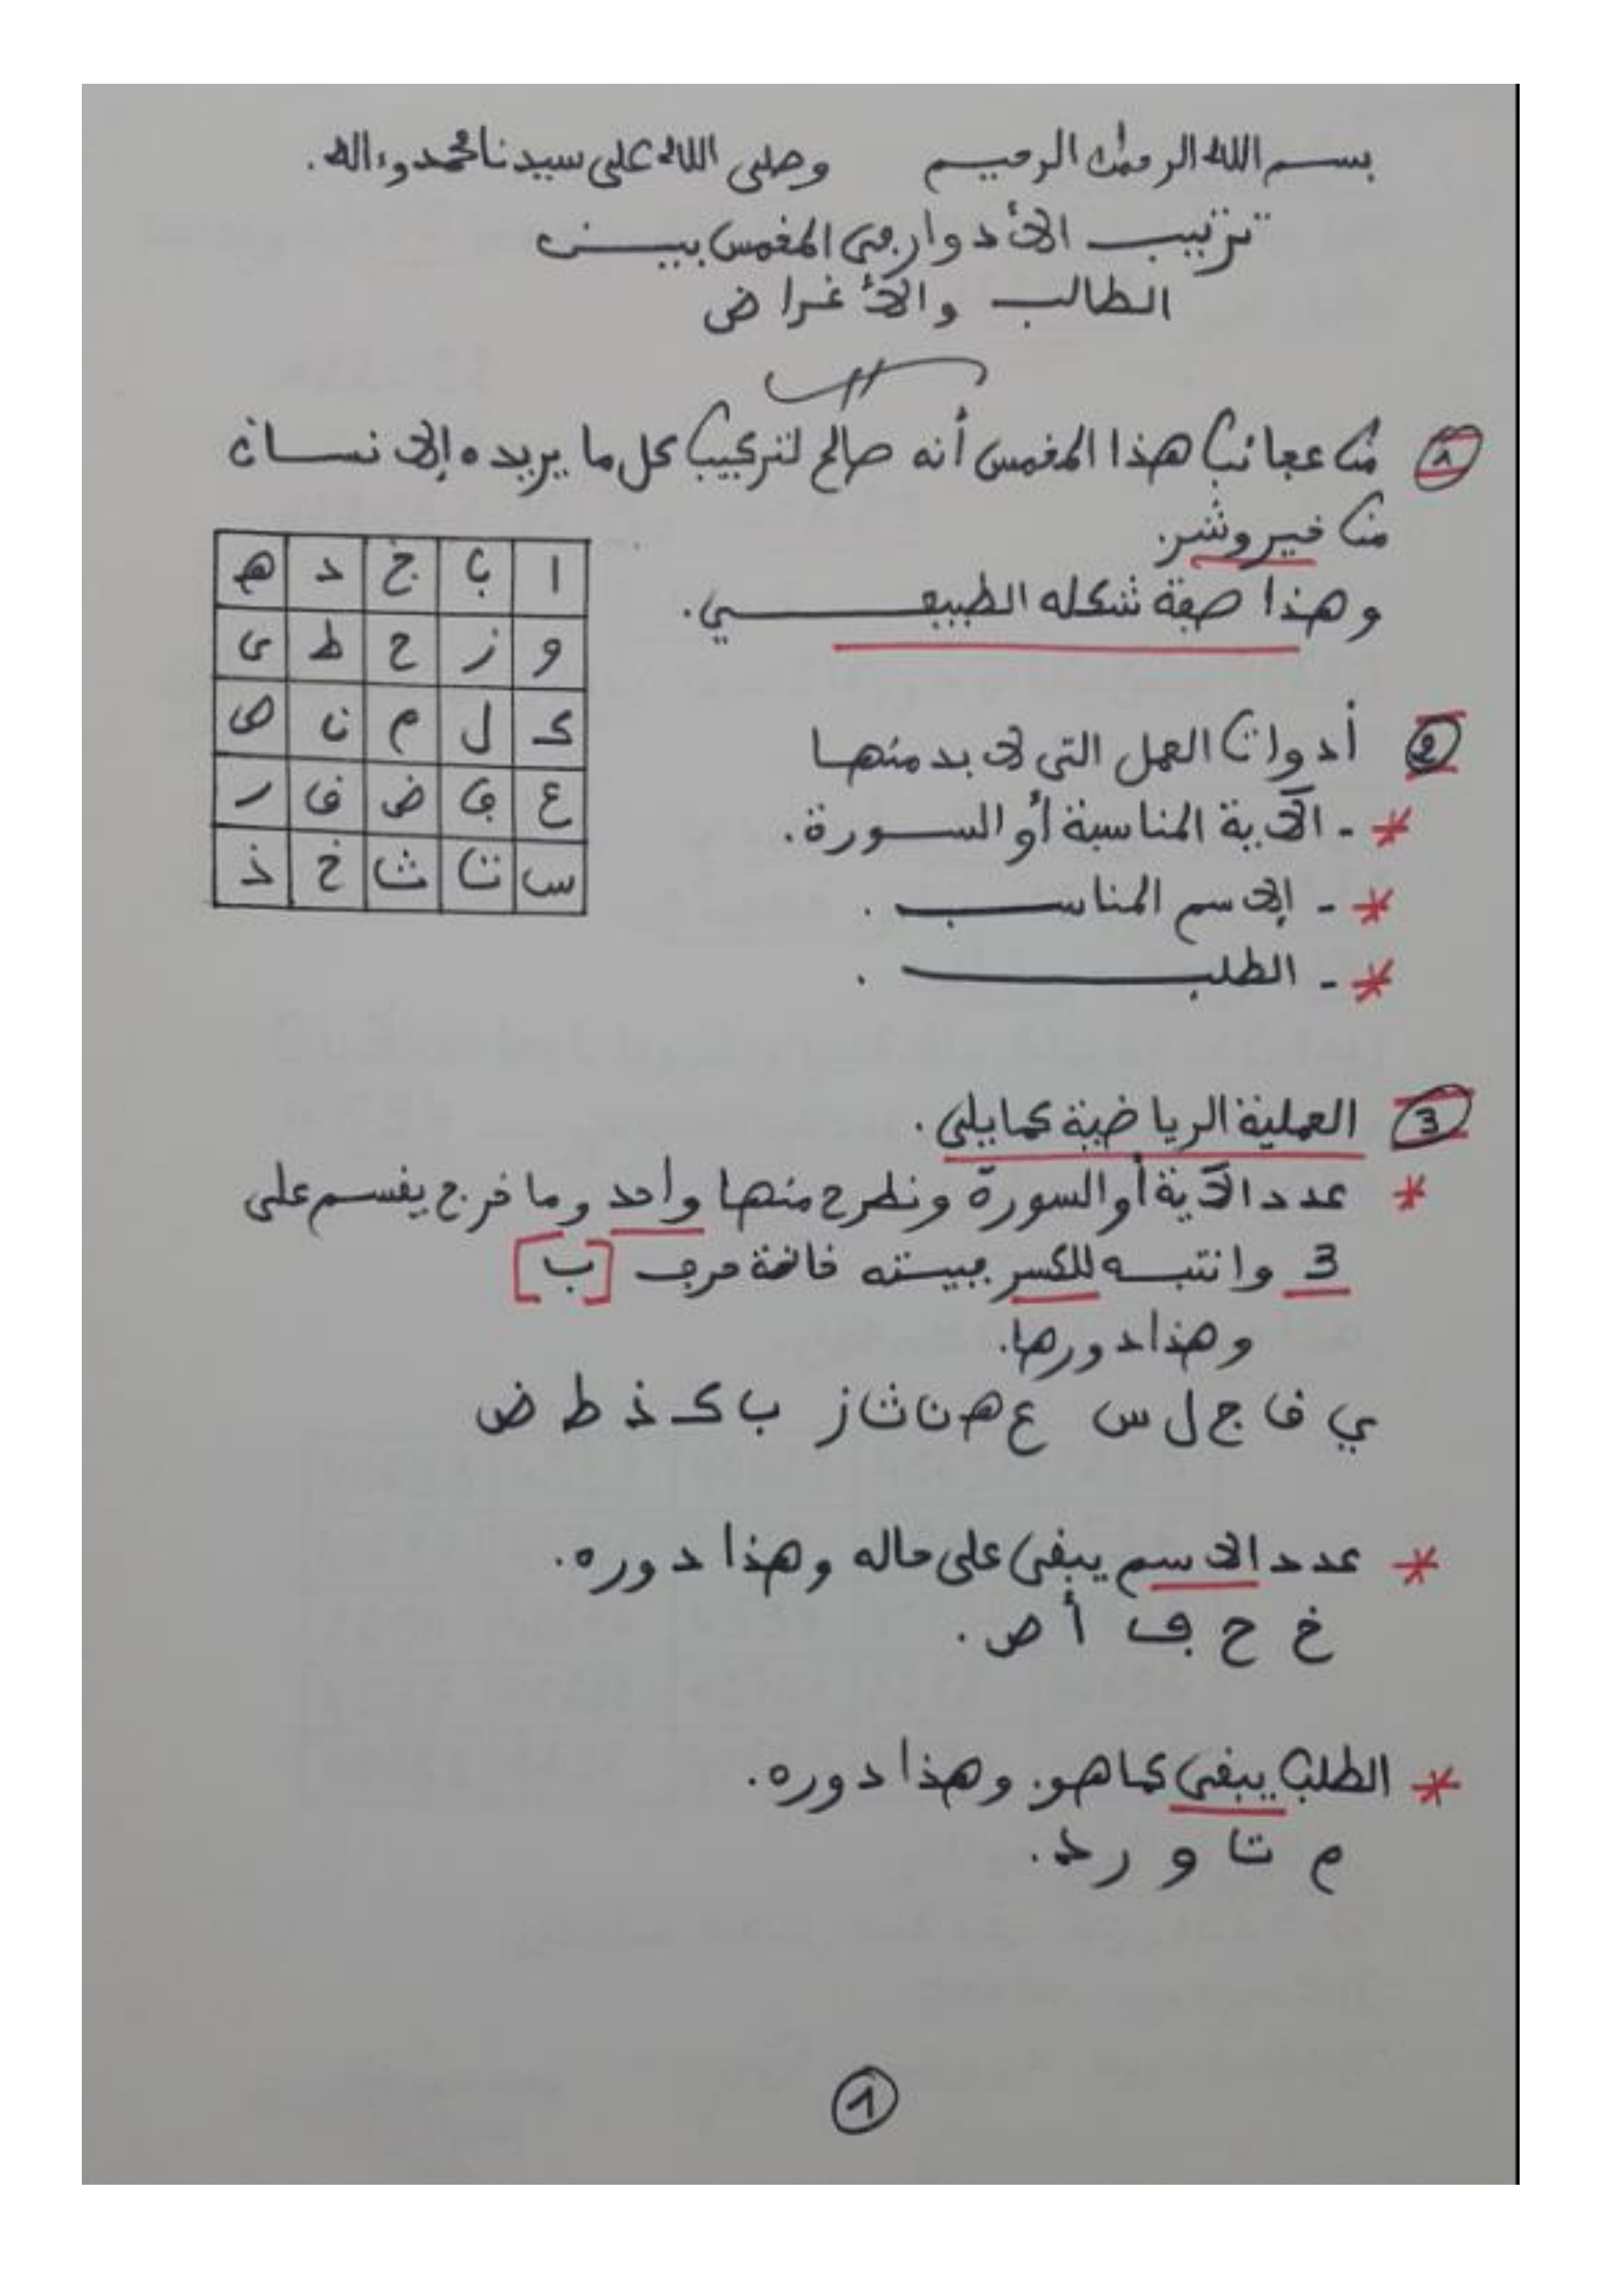 بسم الله الرحمان الرحيم وصلى الله على سيدنا محمد وءاله.
ترتيب الأدوار في المخمس بين
الطالب والأغراض
1 من عجائب هذا المخمس أنه صالح لتركيب كل ما يريده الإنسان
من خير وشر.
وهذا صفة شكله الطبيعي.
ا ب ج د ه
و ز ح ط ى
ك ل م ن ص
ع ف ض ق ر
س ت ث خ ذ
2 أدوات العمل التي لا بد منها
* - الآية المناسبة أو السورة.
* - الإسم المناسب.
* - الطلب.
3 العملية الرياضية كما يلي.
* عدد الآية أو السورة ونطرح منها واحد وما خرج يقسم على
3 وانتبه للكسر ببيته خانة حرف [ب]
وهذا دورها.
ي ق ج ل س ع ه ن ث ز ب ك ذ ط ض
* عدد الاسم يبقى على حاله وهذا دوره.
خ ح ف أ ص.
* الطلب يبقى كما هو. وهذا دوره.
م ت و ر د.
1